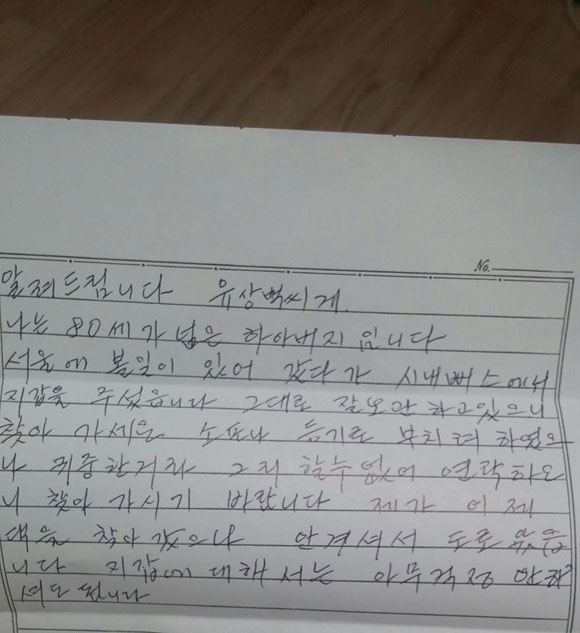 No.
알려드립니다 유상벽씨게
나는 80세가 넘은 하아버지 임니다
서울에 볼일이 있어 갔다가 시내뻐스에서
지갑을 주섰읍니다 그대로 잘보관하고있으니
찾아 가세요 소포나 등기로 부치려 하였으
나 귀중한거라 그리 할수없어 연락하오
니 찾아 가시기 바랍니다 제가 어제
댁을 찾아 갔으나 안게셔서 도로 왔읍
니다 지갑에 대해서는 아무걱정 안하
셔도 됩니다